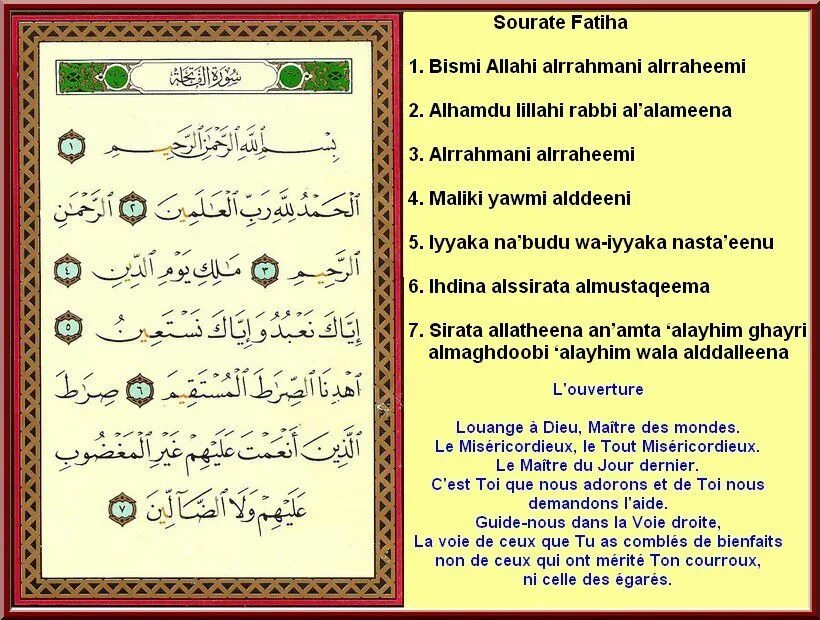 سورة الفاتحة
بِسْمِ اللَّهِ الرَّحْمَٰنِ الرَّحِيمِ ١
الْحَمْدُ لِلَّهِ رَبِّ الْعَالَمِينَ ٢ الرَّحْمَٰنِ
الرَّحِيمِ ٣ مَالِكِ يَوْمِ الدِّينِ ٤
إِيَّاكَ نَعْبُدُ وَإِيَّاكَ نَسْتَعِينُ ٥
اهْدِنَا الصِّرَاطَ الْمُسْتَقِيمَ ٦ صِرَاطَ
الَّذِينَ أَنْعَمْتَ عَلَيْهِمْ غَيْرِ الْمَغْضُوبِ
عَلَيْهِمْ وَلَا الضَّالِّينَ ٧
Sourate Fatiha
1. Bismi Allahi alrrahmani alrraheemi
2. Alhamdu lillahi rabbi al’alameena
3. Alrrahmani alrraheemi
4. Maliki yawmi alddeeni
5. Iyyaka na’budu wa-iyyaka nasta’eenu
6. Ihdina alssirata almustaqeema
7. Sirata allatheena an’amta ‘alayhim ghayri
almaghdoobi ‘alayhim wala alddalleena
L'ouverture
Louange à Dieu, Maître des mondes.
Le Miséricordieux, le Tout Miséricordieux.
Le Maître du Jour dernier.
C'est Toi que nous adorons et de Toi nous
demandons l'aide.
Guide-nous dans la Voie droite,
La voie de ceux que Tu as comblés de bienfaits
non de ceux qui ont mérité Ton courroux,
ni celle des égarés.